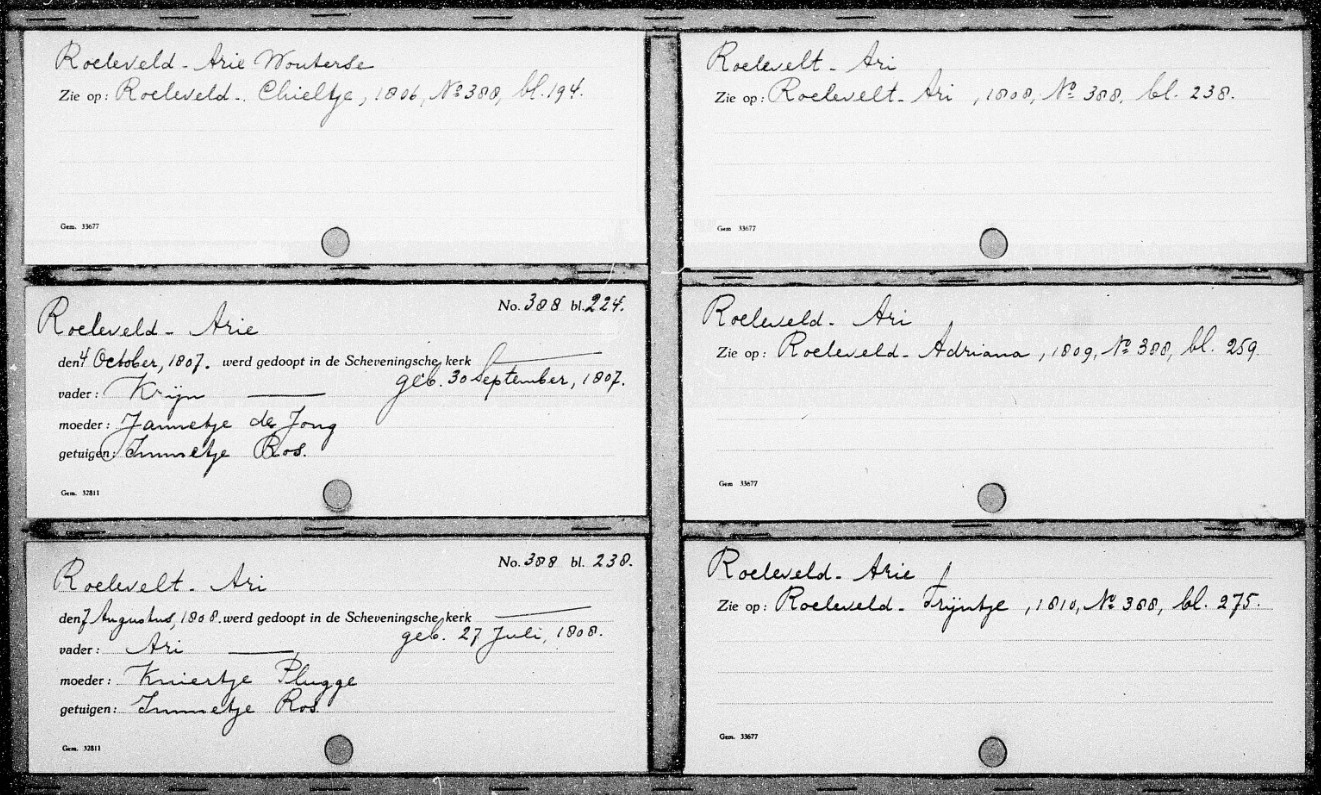 Roeleveld - Arie Wouterse
Zie op: Roeleveld - Chieltje, 1806, No 388, bl. 194.
Gem. 33677
No. 388 bl. 224.
Roeleveld - Arie
den 4 October, 1807. werd gedoopt in de Scheveningsche kerk
geb. 30 September, 1807.
vader: Krijn —
moeder: Jannetje de Jong
getuigen: Immetje Ros.
Gem. 32811
No. 388 bl. 238.
Roelevelt - Ari
den 7 Augustus, 1808. werd gedoopt in de Scheveningsche kerk
geb. 27 Juli, 1808.
vader: Ari —
moeder: Kniertje Plugge
getuigen: Immetje Ros
Gem. 32811
Roelevelt - Ari
Zie op: Roelevelt - Ari, 1808, No 388, bl. 238.
Gem 33677
Roeleveld - Ari
Zie op: Roeleveld - Adriana, 1809, No 388, bl. 259
Gem 33677
Roeleveld - Arie
Zie op: Roeleveld - Trijntje, 1810, No 388, bl. 275.
Gem. 33677